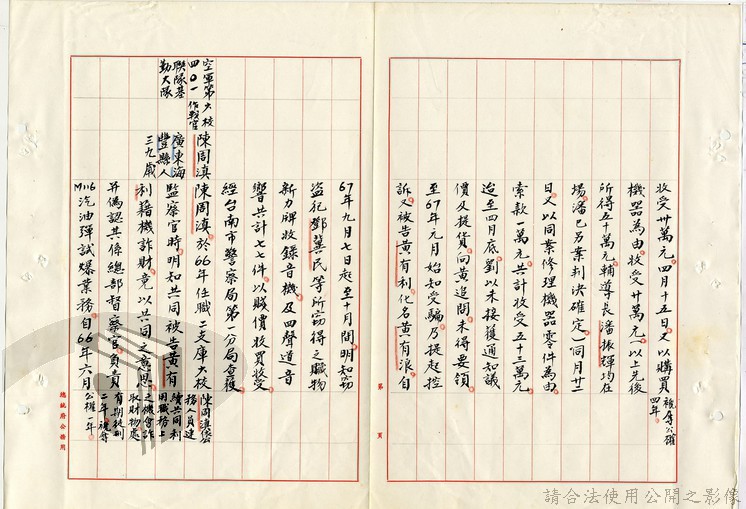 收受卅萬元四月十五日又以購買
機器為由收受卅萬元(以上先後
所得五十萬元輔導長潘振強均在
場潘已另案判決確定)同月廿二
日又以同業修理機器零件為由
索款一萬元共計收受五十三萬元
迨至四月底劉以未接獲通知議
價及提貨向黃追問未得要領
至67年元月始知受騙乃提起控
訴又被告黃有利化名黃有浪自
褫奪公權
四年
67年九月七日起至十月間明知竊
盜犯鄧冀民等所竊得之贓物
新力牌收錄音機及四聲道音
響共計七七件以賤價收買收受
經台南市警察局第一分局查獲
陳周滇於66年任職二支庫少校
監察官時明知共同被告黃有
利藉機詐財竟以共同之意思
并偽認共係總部督察官負責
M116汽油彈試爆業務自66年六月
空軍第
四〇一
聯隊基
勤大隊
少校
作戰官
陳周滇
廣東海
豐縣人
三九歲
陳周滇係公
務人員連
續共同利
用職務上
之機會詐
取財物處
有期徒刑
二年褫奪
公權一年
第 頁
總統府公務用
請合法使用公開之影像